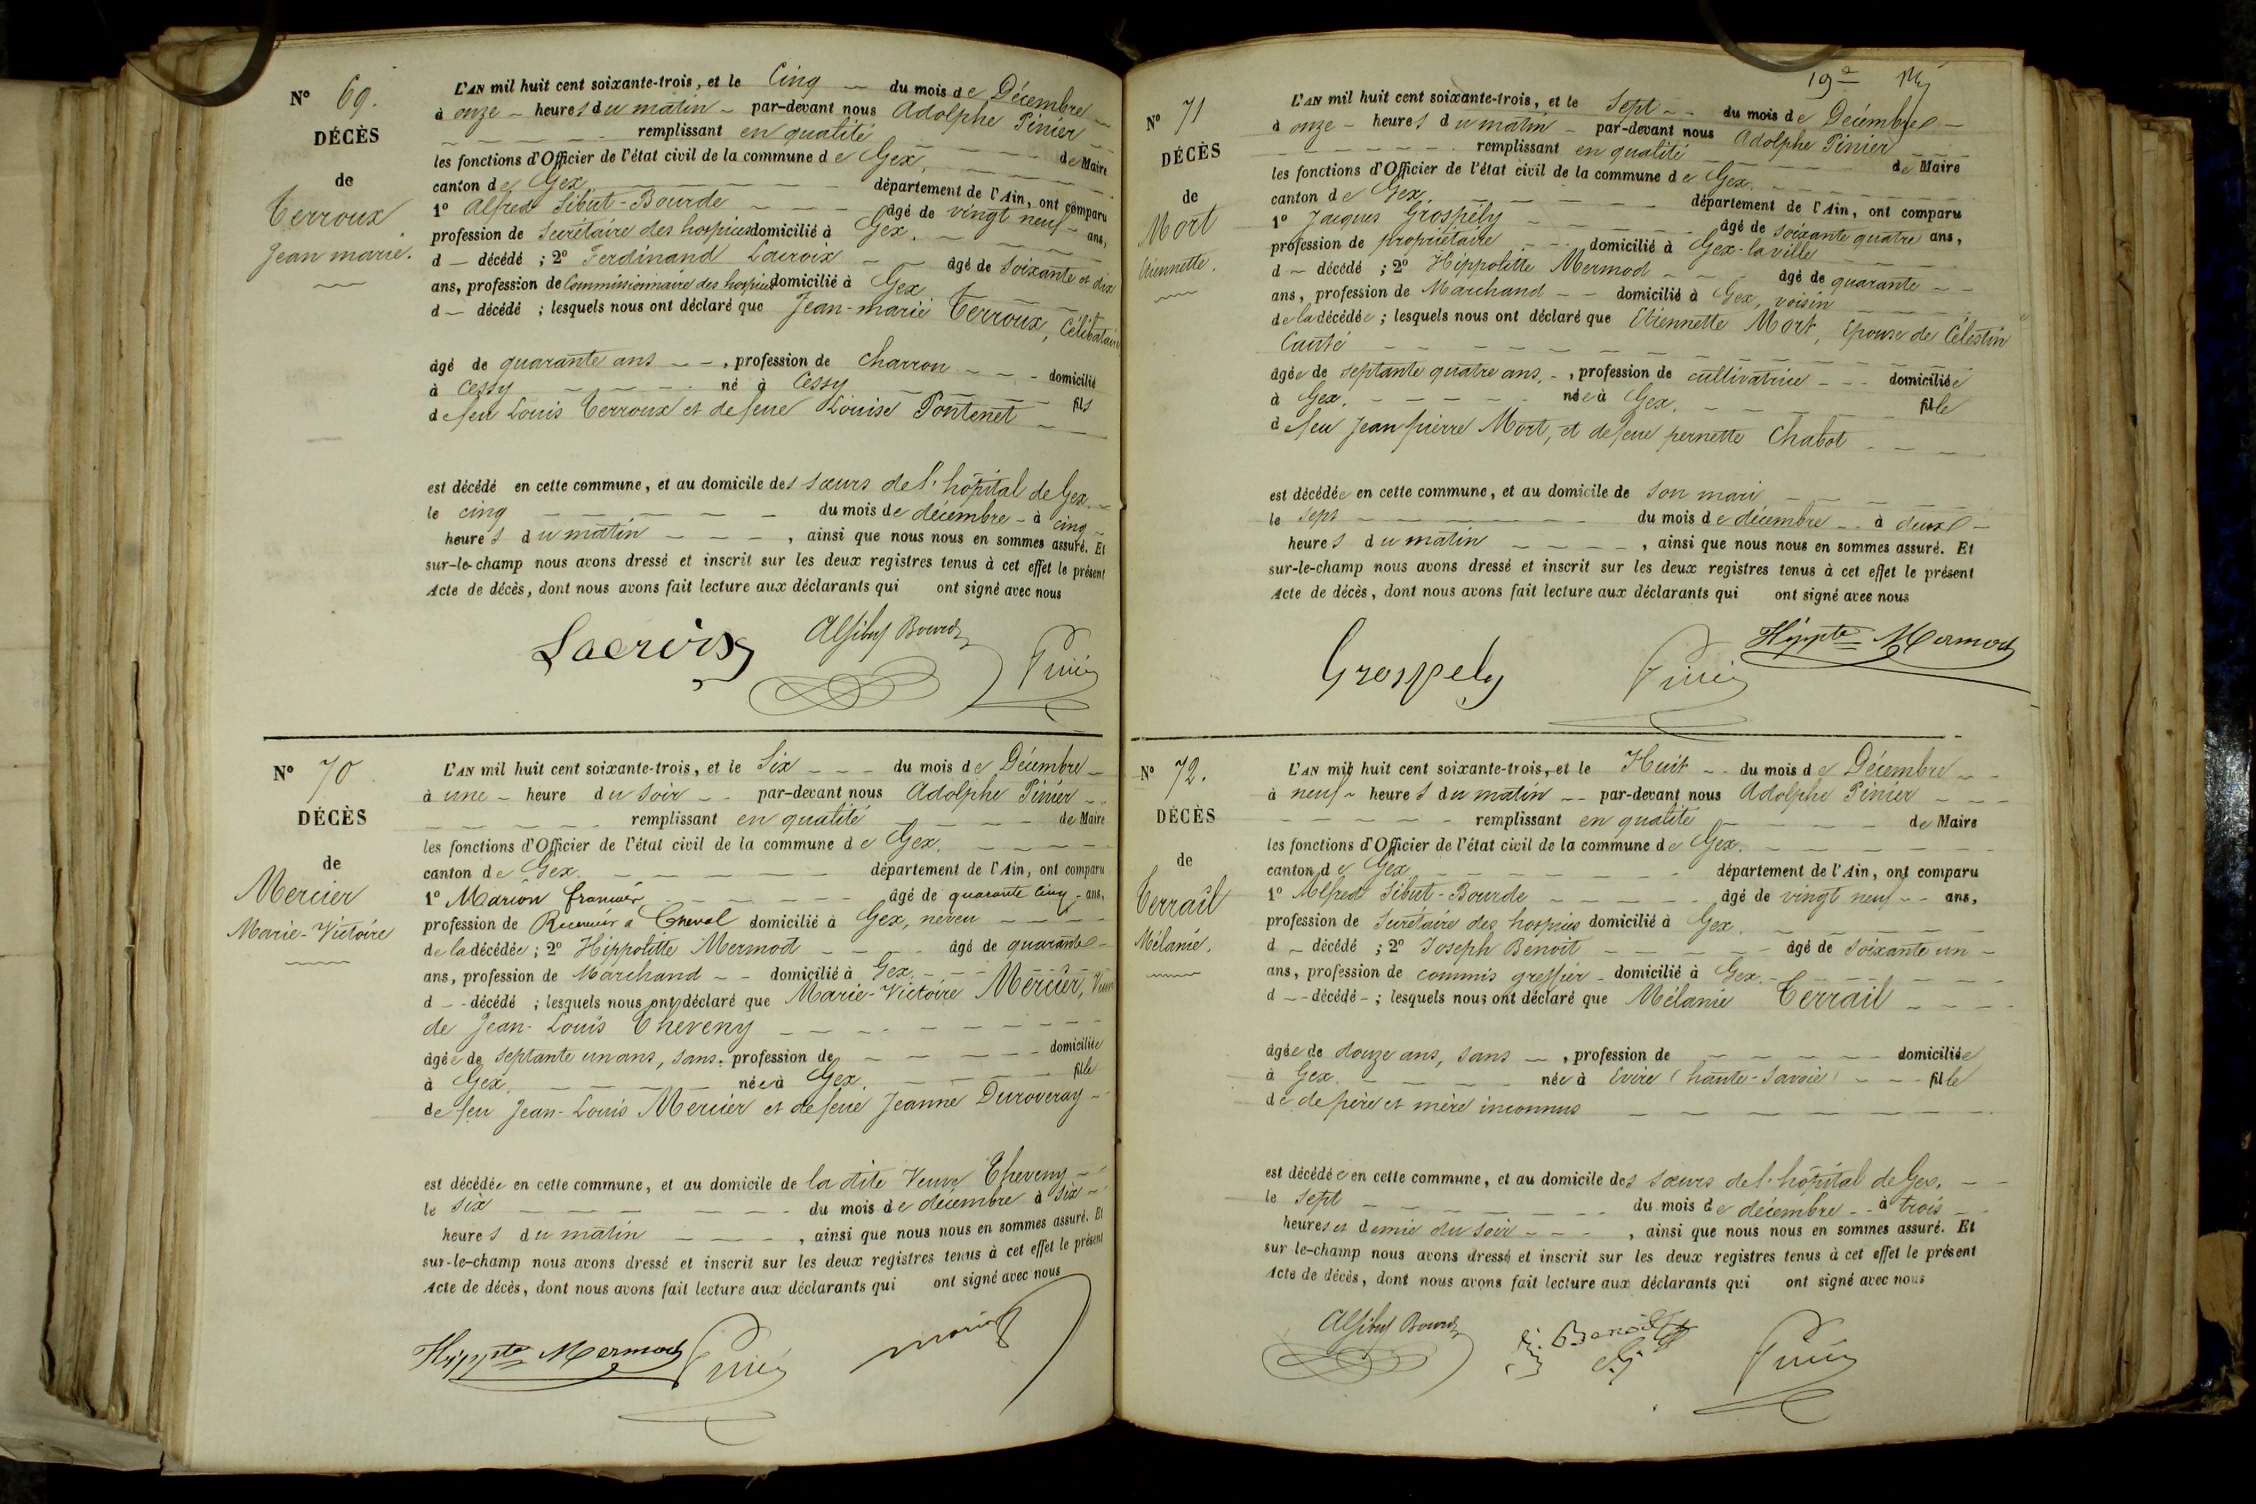 N° 69.
DÉCÈS
de
Terroux
Jean marie.
L'AN mil huit cent soixante-trois, et le Cinq du mois de Décembre
à onze heures du matin par-devant nous Adolphe Pinier
remplissant en qualité de Maire
les fonctions d'Officier de l'état civil de la commune de Gex.
canton de Gex département de l'Ain, ont comparu
1° Alfred Sibut-Bourde âgé de vingt neuf ans,
profession de Secrétaire des hospices domicilié à Gex.
d décédé ; 2° Ferdinand Lacroix âgé de soixante et dix
ans, profession de Commissionnaire des hospices domicilié à Gex
d décédé ; lesquels nous ont déclaré que Jean-marie Terroux, Célibataire
âgé de quarante ans, profession de charron domicilié
à Cessy né à Cessy fils
de feu Louis Terroux et de feue Louise Pontenet
est décédé en cette commune, et au domicile des sœurs de l'hôpital de Gex.
le cinq du mois de décembre à cinq
heures du matin, ainsi que nous nous en sommes assuré. Et
sur-le-champ nous avons dressé et inscrit sur les deux registres tenus à cet effet le présent
Acte de décès, dont nous avons fait lecture aux déclarants qui ont signé avec nous
Lacroix Alf Sibut Bourde Pinier
N° 70
DÉCÈS
de
Mercier
Marie-Victoire
L'AN mil huit cent soixante-trois, et le Six du mois de Décembre
à une heure du soir par-devant nous Adolphe Pinier
remplissant en qualité de Maire
les fonctions d'Officier de l'état civil de la commune de Gex.
canton de Gex. département de l'Ain, ont comparu
1° Marion françois âgé de quarante cinq ans,
profession de Receveur à Cheval domicilié à Gex, neveu
de la décédée ; 2° Hippolitte Mermod âgé de quarante
ans, profession de Marchand domicilié à Gex.
d décédé ; lesquels nous ont déclaré que Marie-Victoire Mercier, Veuve
de Jean-Louis Theveny
âgée de septante un ans, sans profession de domiciliée
à Gex. née à Gex. fille
de feu Jean-Louis Mercier et de feue Jeanne Duroveray
est décédée en cette commune, et au domicile de la dite Veuve Theveny
le six du mois de décembre à six
heures du matin, ainsi que nous nous en sommes assuré. Et
sur-le-champ nous avons dressé et inscrit sur les deux registres tenus à cet effet le présent
Acte de décès, dont nous avons fait lecture aux déclarants qui ont signé avec nous
Hippte Mermod Pinier Marion
19e
N° 71
DÉCÈS
de
Mort
Etiennette.
L'AN mil huit cent soixante-trois, et le Sept du mois de Décembre
à onze heures du matin par-devant nous Adolphe Pinier
remplissant en qualité de Maire
les fonctions d'Officier de l'état civil de la commune de Gex.
canton de Gex. département de l'Ain, ont comparu
1° Jacques Grospély âgé de soixante quatre ans,
profession de propriétaire domicilié à Gex-la-ville
d décédé ; 2° Hippolitte Mermod âgé de quarante
ans, profession de Marchand domicilié à Gex, voisin
de la décédée ; lesquels nous ont déclaré que Etiennette Mort, Epouse de Célestin
Cauté
âgée de septante quatre ans, profession de cultivatrice domiciliée
à Gex. née à Gex. fille
de feu Jean pierre Mort, et de feue pernette Chabot
est décédée en cette commune, et au domicile de son mari
le sept du mois de décembre à deux
heures du matin, ainsi que nous nous en sommes assuré. Et
sur-le-champ nous avons dressé et inscrit sur les deux registres tenus à cet effet le présent
Acte de décès, dont nous avons fait lecture aux déclarants qui ont signé avec nous
Grospely Pinier Hippte Mermod
N° 72.
DÉCÈS
de
Terrail
Mélanie.
L'AN mil huit cent soixante-trois, et le Huit du mois de Décembre
à neuf heures du matin par-devant nous Adolphe Pinier
remplissant en qualité de Maire
les fonctions d'Officier de l'état civil de la commune de Gex.
canton de Gex département de l'Ain, ont comparu
1° Alfred Sibut-Bourde âgé de vingt neuf ans,
profession de Secrétaire des hospices domicilié à Gex.
d décédé ; 2° Joseph Benoit âgé de soixante un
ans, profession de commis greffier domicilié à Gex.
d décédé ; lesquels nous ont déclaré que Mélanie Terrail
âgée de douze ans, sans, profession de domiciliée
à Gex. née à Evire (haute-Savoie) fille
de de père et mère inconnus
est décédée en cette commune, et au domicile des sœurs de l'hôpital de Gex.
le sept du mois de décembre à trois
heures et demie du soir, ainsi que nous nous en sommes assuré. Et
sur le-champ nous avons dressé et inscrit sur les deux registres tenus à cet effet le présent
Acte de décès, dont nous avons fait lecture aux déclarants qui ont signé avec nous
Alf Sibut Bourde J. Benoit Pinier